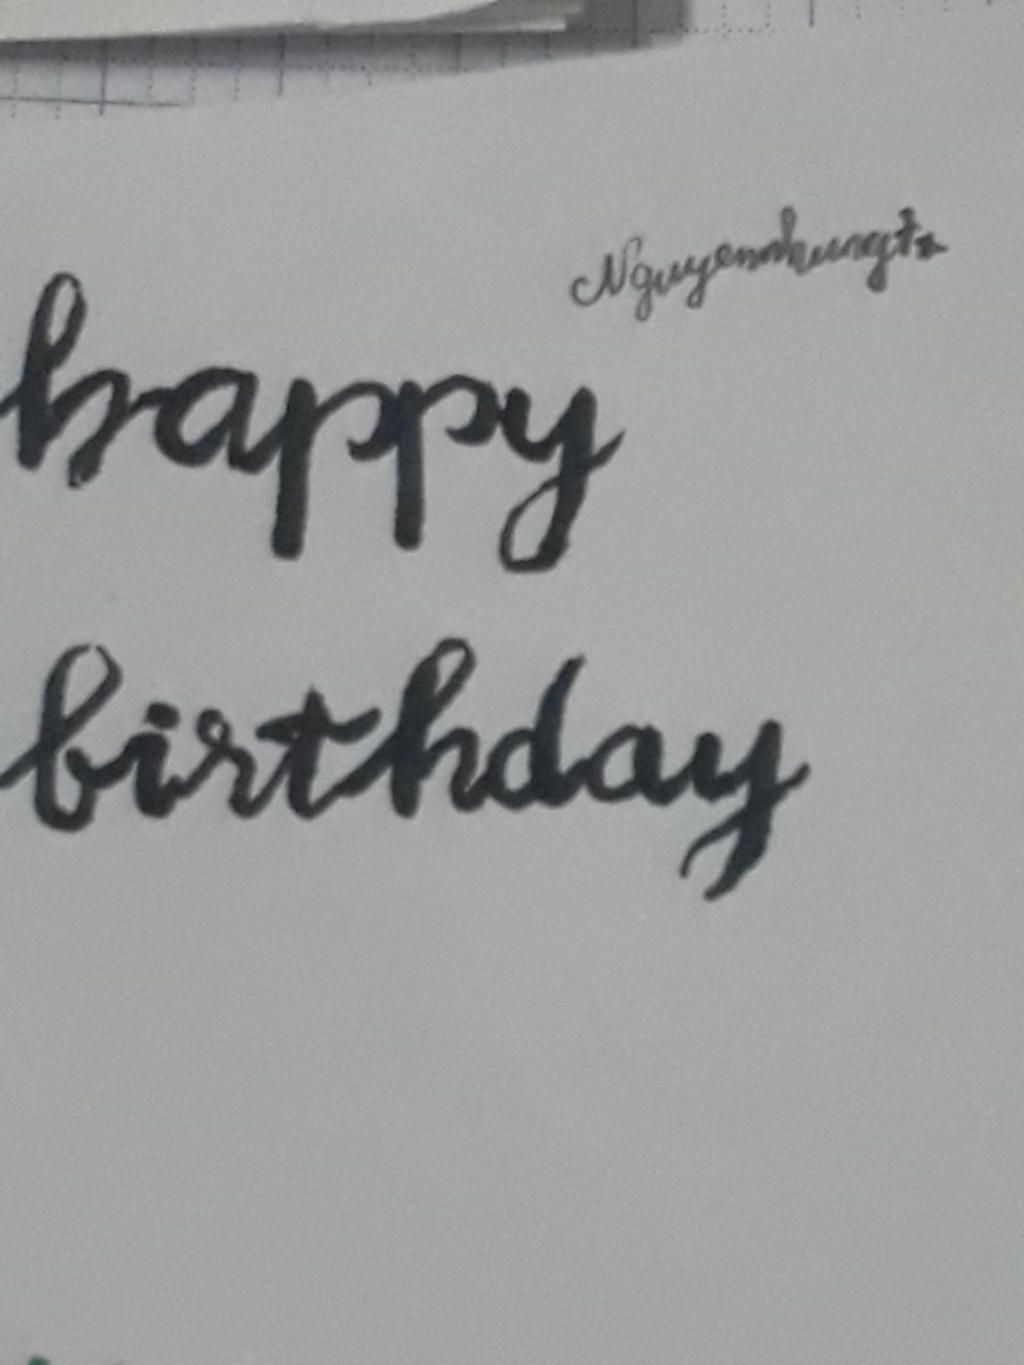 Nguyennhungtx
happy
birthday